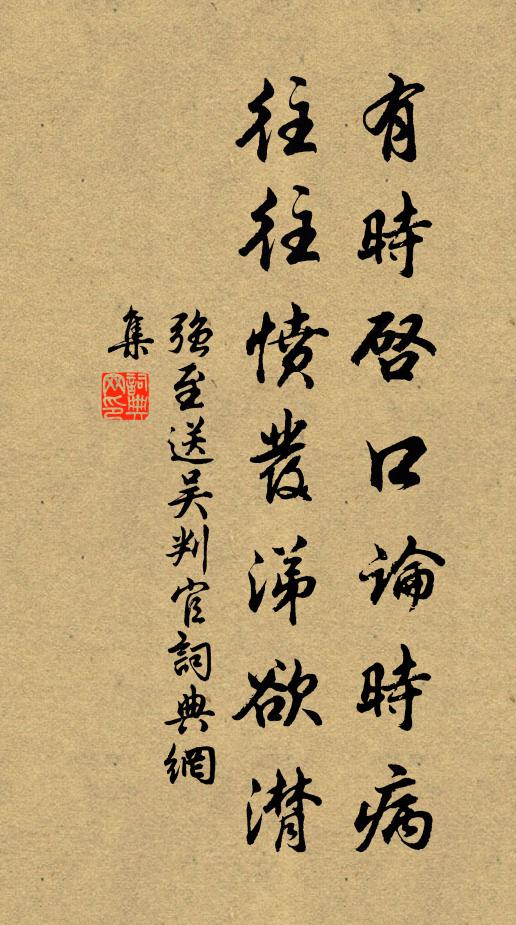 有時啓口論時病
往往憤發涕欲潸
強至送吴判官詞典網
集
詞典網印